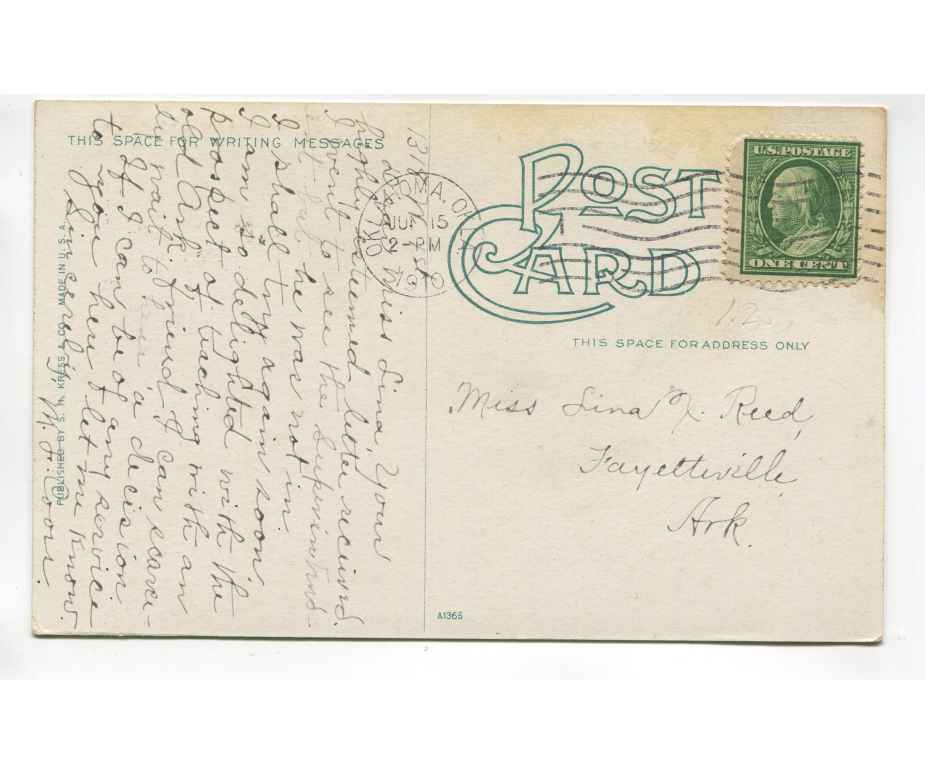 THIS SPACE FOR WRITING MESSAGES
1318 W. 1st
Dear Miss Lina, Your
highly esteemed letter received
I went to see the Superintend-
he was not in.
I shall try again soon
I am so delighted with the
prospect of teaching with an
old Ark. friend I can scarce-
ly wait to a decision
If I can be of any service
to you here let me know.
Sincerely,
PUBLISHED BY S. H. KRESS & CO. MADE IN U.S.A.
POST
CARD
OKLAHOMA, OKLA.
JUN 15
2-PM
U.S. POSTAGE
ONE CENT
12
THIS SPACE FOR ADDRESS ONLY
Miss Lina Reed,
Fayetteville,
Ark.
A1366